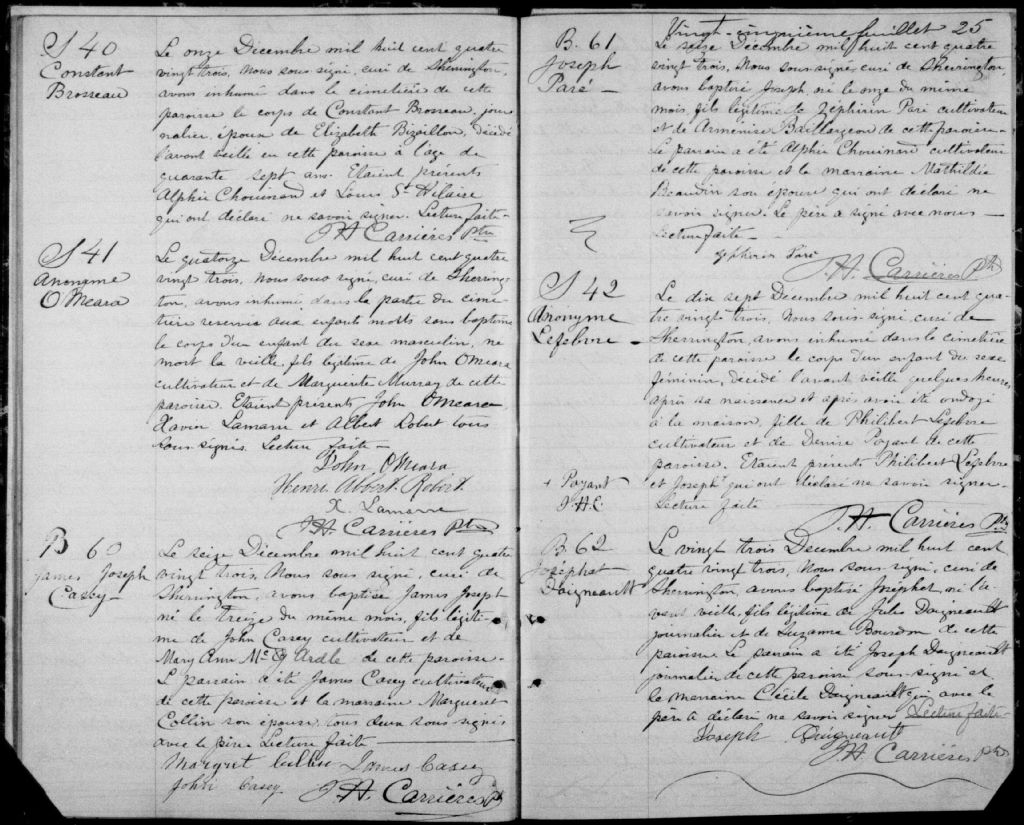 S 40
Constant
Brosseau
Le onze Décembre mil huit cent quatre
vingt trois, Nous sous-signé, curé de Sherrington,
avons inhumé dans le cimetière de cette
paroisse le corps de Constant Brosseau, jour
nalier, époux de Elizabeth Bizaillon, décédé
l'avant veille en cette paroisse à l'âge de
quarante sept ans. Etaient présents
Alphée Chouinard et Louis St Hilaire
qui ont déclaré ne savoir signer. Lecture faite -
J.H. Carrières Ptre
S 41
Anonyme
O'Meara
Le quatorze Décembre mil huit cent quatre
vingt trois, Nous sous-signé, curé de Sherring-
ton, avons inhumé dans la partie du cime
tière réservée aux enfants morts sans baptême
le corps d'un enfant du sexe masculin, né
mort la veille, fils légitime de John O'Meara
cultivateur et de Marguerite Murray de cette
paroisse. Etaient présents John O'Meara
Xavier Lamarre et Albert Robert tous
sous-signés. Lecture faite -
John O'Meara
Henri Albert Robert
X. Lamarre
J.H. Carrières Ptre
B 60
James Joseph
Casey -
Le seize Décembre mil huit cent quatre
vingt trois, Nous sous signé, curé de
Sherrington, avons baptisé James Joseph
né le treize du même mois, fils légiti-
me de John Casey cultivateur et de
Mary Ann Mc Ardle de cette paroisse -
L parrain a été James Casey cultivateur
de cette paroisse et la marraine Margueret
Collin son épouse, tous deux sous-signés
avec le père Lecture faite -
Margret Cullen James Casey
John Casey J.H. Carrières Pt
Vingt-cinquième feuillet 25
B. 61
Joseph
Paré -
Le seize Décembre mil huit cent quatre
vingt trois, Nous sous-signé, curé de Sherrington,
avons baptisé Joseph, né le onze du même
mois, fils légitime de Zéphirin Paré cultivateur
et de Arménise Baillargeon de cette paroisse -
Le parrain a été Alphée Chouinard cultivateur
de cette paroisse et la marraine Mathildée
Beaudin son épouse qui ont déclaré ne
savoir signer. Le père a signé avec nous -
Lecture faite -
Zepherin Paré
J.H. Carrières Pt
S 42
Anonyme
Lefebvre -
Le dix sept Décembre mil huit cent qua-
tre vingt trois, Nous sous-signé, curé de
Sherrington, avons inhumé dans le cimetière
de cette paroisse le corps d'un enfant du sexe
féminin, décédé l'avant veille quelques heures
après sa naissance et après avoir été ondoyé
à la maison, fille de Philibert Lefebvre
cultivateur et de Denise Poyant de cette
paroisse. Etaient présents Philibert Lefebvre
et Joseph + qui ont déclaré ne savoir signer -
Lecture faite
+ Poyant
J.H.C.
J.H. Carrières Ptre
B. 62
Josephat
Daigneault
Le vingt trois Décembre mil huit cent
quatre vingt trois, Nous sous-signé, curé de
Sherrington, avons baptisé Josephat, né l'a
vant veille, fils légitime de Jules Daigneault
journalier et de Suzanne Bourdon de cette
paroisse. Le parrain a été Joseph Daigneault
journalier de cette paroisse sous-signé et
la marraine Cécile Daigneault qui avec le
père a déclaré ne savoir signer Lecture faite -
Joseph Daigneault
J.H. Carrières Ptre